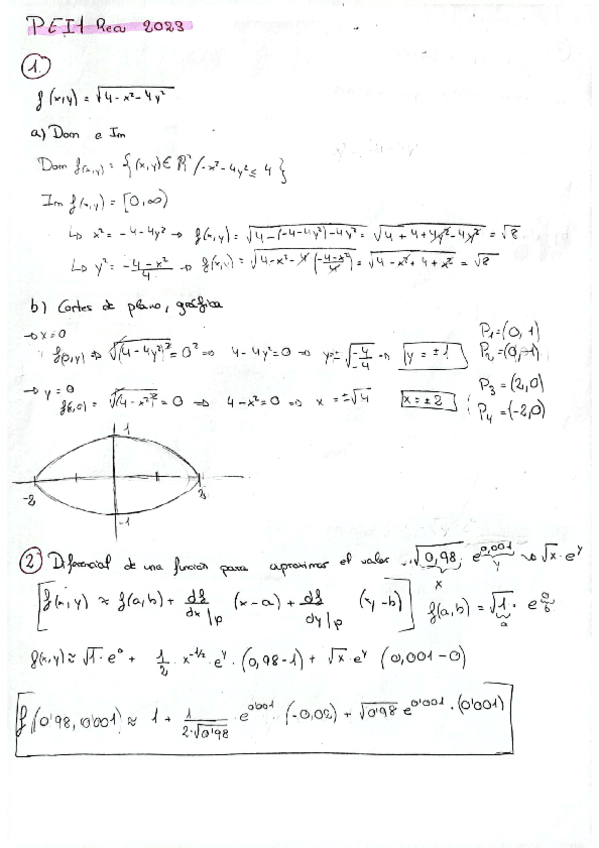 PEI1 Rec 2023
1.
f(x,y) = √4-x²-4y²
a) Dom e Im
Dom f(x,y) = {(x,y) ∈ R²/-x²-4y² ≤ 4}
Im f(x,y) = [0,∞)
↳ x² = -4-4y² → f(x,y) = √4-(-4-4y²)-4y² = √4+4+4y²-4y² = √8
↳ y² = -4-x²/4 → f(x,y) = √4-x²-4(-4-x²/4) = √4-x²+4+x² = √8
b) Cortes de plano, gráfica
→ x=0 P₁=(0,1)
f(0,y) ⇒ √(4-4y²)² = 0² ⇒ 4-4y²=0 ⇒ y=±√-4/-4 ⇒ y=±1 P₂=(0,-1)
→ y=0 P₃=(2,0)
f(x,0) = √(4-x²)² = 0 ⇒ 4-x²=0 ⇒ x=±√4 x=±2 P₄=(-2,0)
1
-2 2
-1
2 Diferencial de una función para aproximar el valor √0,98 · e^0,001 → √x · e^y
x y
f(x,y) ≈ f(a,b) + df/dx|p (x-a) + df/dy|p (y-b) f(a,b) = √1 · e^0
a b
f(x,y) ≈ √1 · e⁰ + 1/2 · x^-1/2 · e^y · (0,98-1) + √x e^y (0,001-0)
f(0'98, 0'001) ≈ 1 + 1/2·√0'98 · e^0'001 (-0,02) + √0'98 e^0'001 · (0'001)